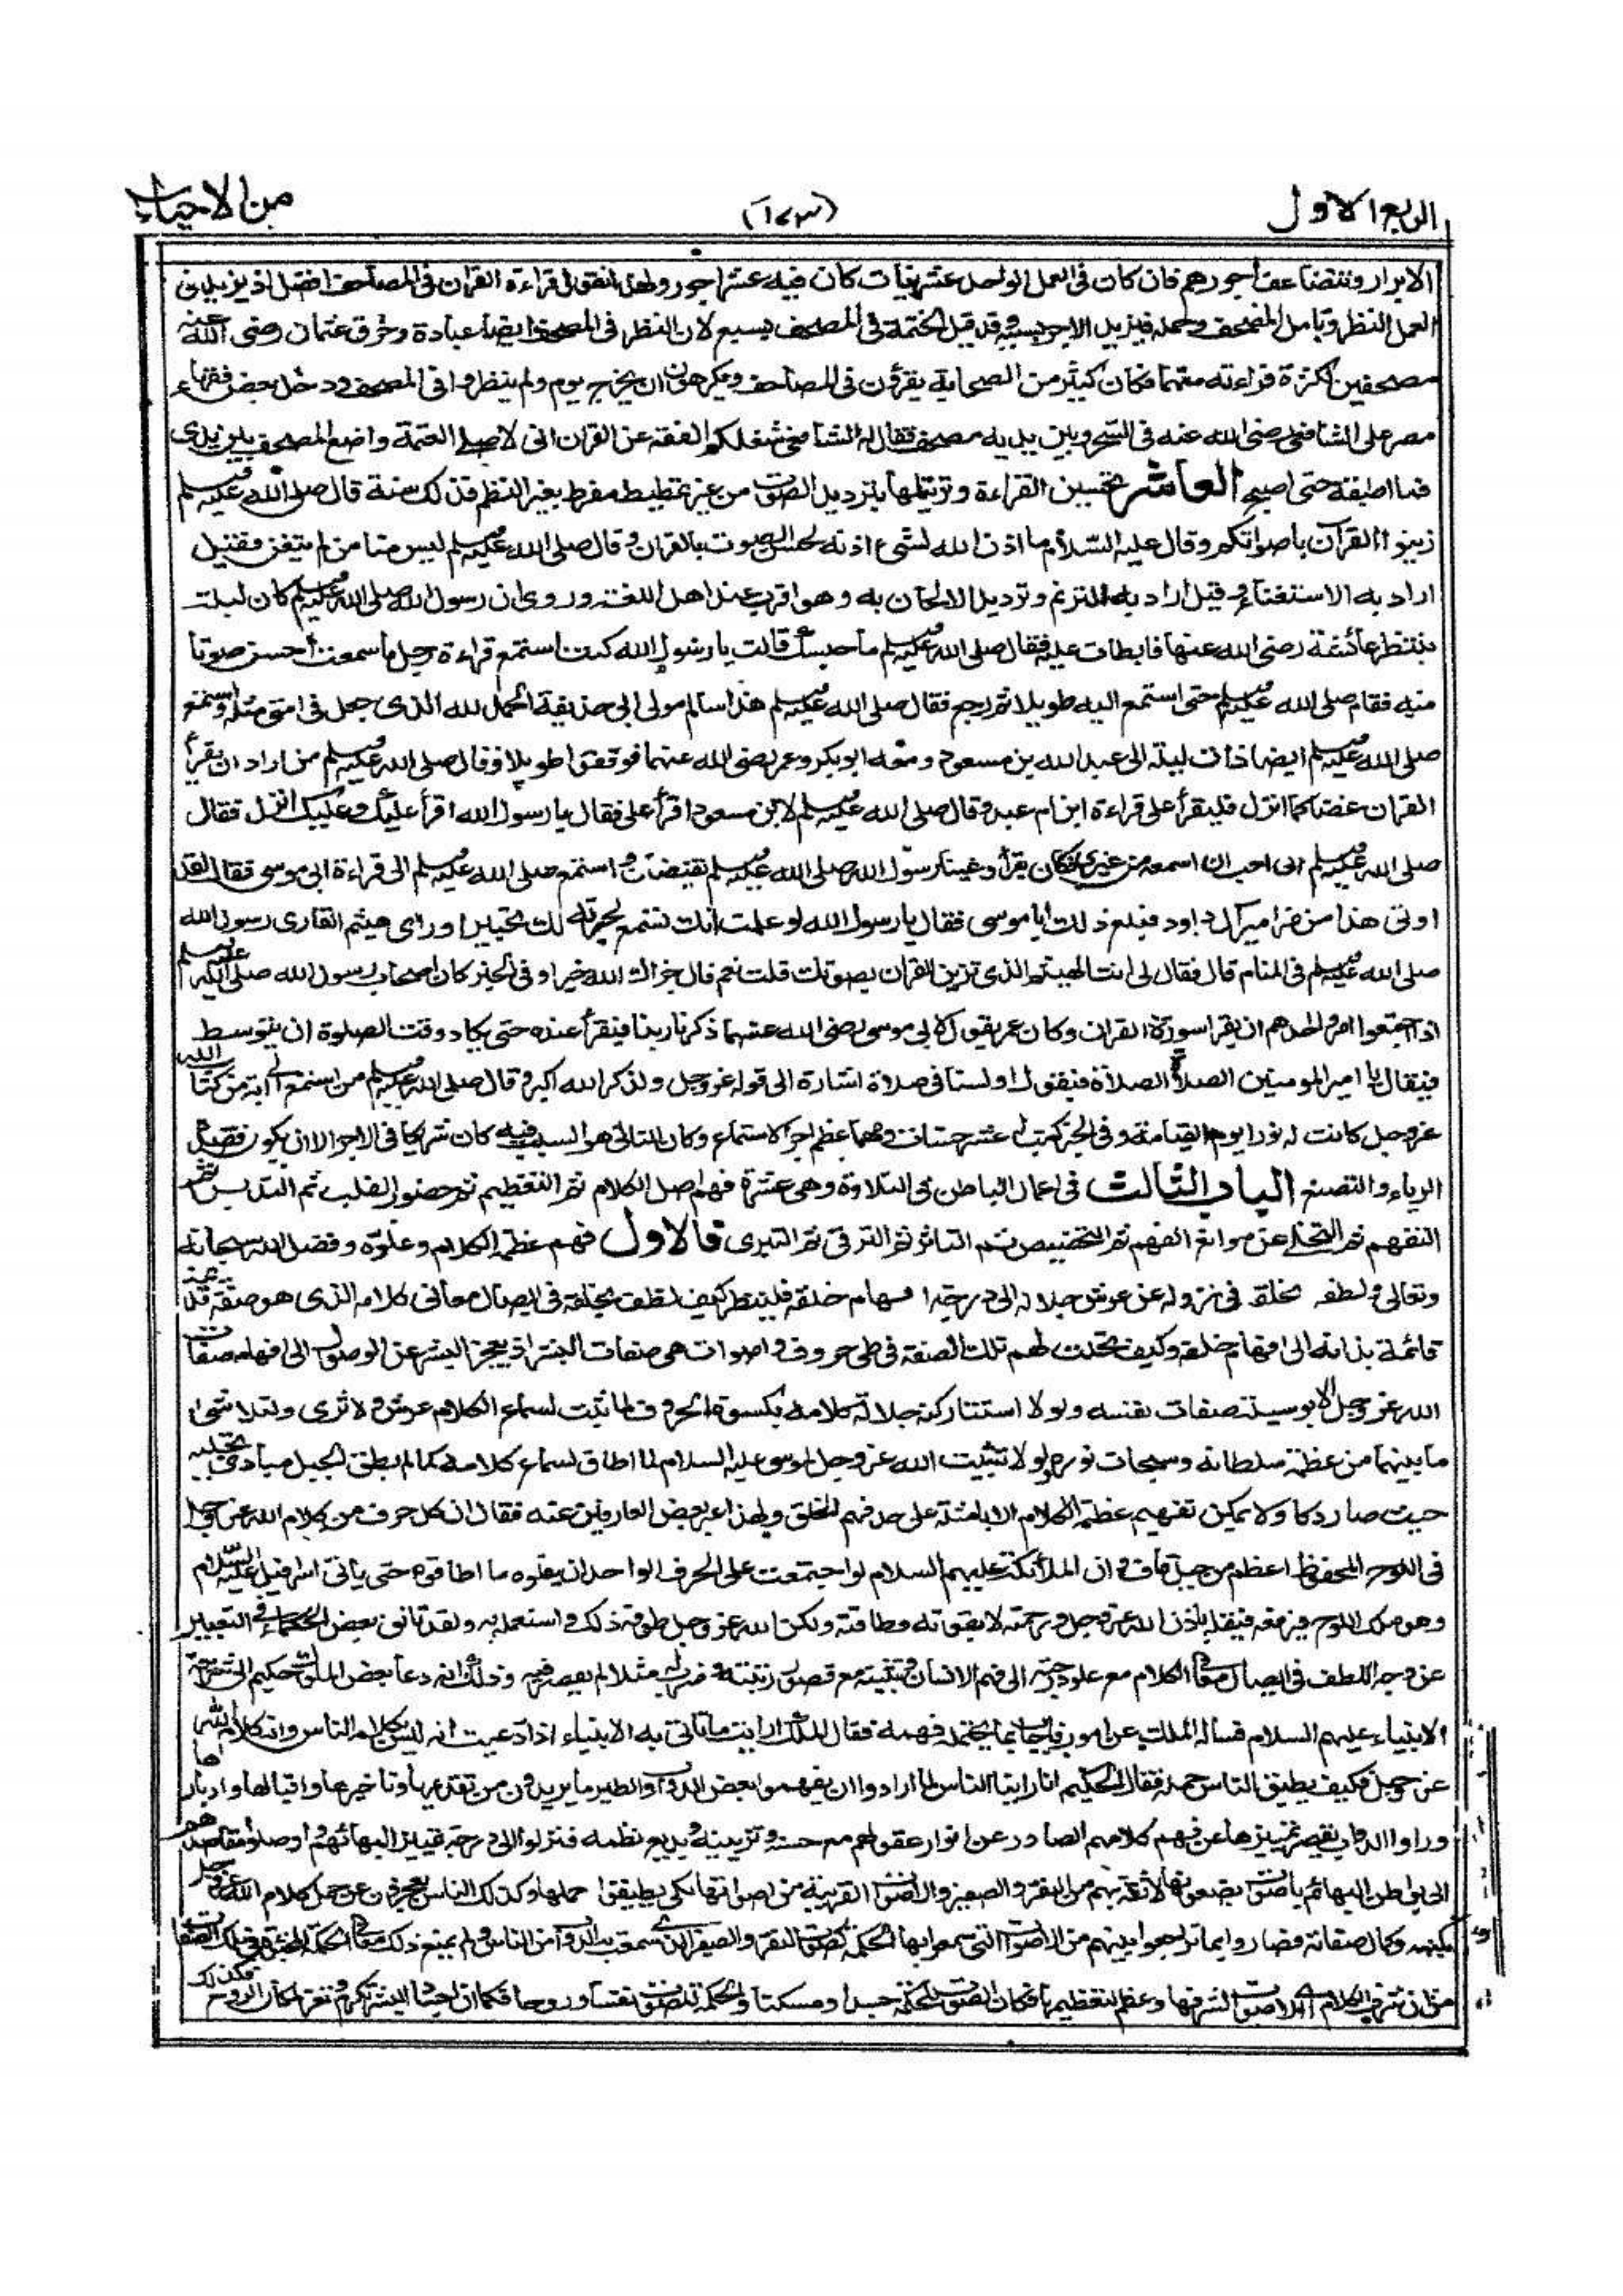 الربع الاول
(١٧٣)
من الاحياء
الابرار وتتضاعف اجورهم فان كان فى العمل الواحد عشر نيات كان فيه عشر اجور ولهذا نقول قراءة القران فى المصاحف افضل اذ يزيد فى
العمل النظر وتامل المصحف وحمله فيزيد الاجر بسببه وقد قيل الختمة فى المصحف بسبع لان النظر فى المصحف ايضا عبادة وخرق عثمان رضى الله عنه
مصحفين لكثرة قراءته منهما فكان كثير من الصحابة يقرؤن فى المصاحف ويكرهون ان يخرج يوم ولم ينظروا فى المصحف ودخل بعض فقهاء
مصر على الشافعى رضى الله عنه فى السحر وبين يديه مصحف فقال له الشافعى شغلكم الفقه عن القران انى لاصلى العتمة واضع المصحف بين يدى
فما اطبقه حتى اصبح العاشر تحسين القراءة وترتيلها بترديد الصوت من غير تمطيط مفرط يغير النظم فذلك سنة قال صلى الله عليه وسلم
زينوا القرآن باصواتكم وقال عليه السلام ما اذن الله لشئ اذنه لحسن الصوت بالقران وقال صلى الله عليه وسلم ليس منا من لم يتغن فقيل
اراد به الاستغناء وقيل اراد به الترنم وترديد الالحان به وهو اقرب عند اهل اللغة وروى ان رسول الله صلى الله عليه وسلم كان ليلة
ينتظر عائشة رضى الله عنها فابطات عليه فقال صلى الله عليه وسلم ما حبسك قالت يا رسول الله كنت استمع قراءة رجل ما سمعت احسن صوتا
منه فقام صلى الله عليه وسلم حتى استمع اليه طويلا ثم رجع فقال صلى الله عليه وسلم هذا سالم مولى ابى حذيفة الحمد لله الذى جعل فى امتى مثله واستمع
صلى الله عليه وسلم ايضا ذات ليلة الى عبد الله بن مسعود ومعه ابو بكر وعمر رضى الله عنهما فوقفوا طويلا وقال صلى الله عليه وسلم من اراد ان يقرأ
القران غضا كما انزل فليقرأ على قراءة ابن ام عبد وقال صلى الله عليه وسلم لابن مسعود اقرأ على فقال يا رسول الله اقرأ عليك وعليك انزل فقال
صلى الله عليه وسلم انى احب ان اسمعه من غيرى فكان يقرأ وعينا رسول الله صلى الله عليه وسلم تفيضان واستمع صلى الله عليه وسلم الى قراءة ابى موسى فقال لقد
اوتى هذا من مزامير آل داود فبلغ ذلك ابا موسى فقال يا رسول الله لو علمت انك تستمع لحبرته لك تحبيرا وراى هيثم القارى رسول الله
صلى الله عليه وسلم فى المنام قال فقال لى انت الهيثم الذى تزين القران بصوتك قلت نعم قال جزاك الله خيرا وفى الخبر كان اصحاب رسول الله صلى الله عليه وسلم
اذا اجتمعوا امروا احدهم ان يقرا سورة القران وكان عمر يقول لابى موسى رضى الله عنهما ذكرنا ربنا فيقرأ عنده حتى يكاد وقت الصلوة ان يتوسط
فيقال يا امير المومنين الصلاة الصلاة فيقول او لسنا فى صلاة اشارة الى قوله عز وجل ولذكر الله اكبر وقال صلى الله عليه وسلم من استمع الى آية من كتاب الله
عز وجل كانت له نورا يوم القيامة وفى الخبر كتب له عشر حسنات ومهما عظم اجر الاستماع وكان التالى هو السبب فيه كان شريكا فى الاجر الا ان يكون قصده
الرياء والتصنع الباب الثالث فى اعمال الباطن فى التلاوة وهى عشرة فهم اصل الكلام ثم التعظيم ثم حضور القلب ثم التدبر ثم
التفهم ثم التخلى عن موانع الفهم ثم التخصيص ثم التاثر ثم الترقى ثم التبرى فالاول فهم عظمة الكلام وعلوه وفضل الله سبحانه
وتعالى ولطفه بخلقه فى نزوله عن عرش جلاله الى درجة افهام خلقه فلينظر كيف لطف بخلقه فى ايصال معانى كلامه الذى هو صفة قديمة
قائمة بذاته الى افهام خلقه وكيف تجلت لهم تلك الصفة فى طى حروف واصوات هى صفات البشر اذ يعجز البشر عن الوصول الى افهام صفات
الله عز وجل الا بوسيلة صفات نفسه ولولا استتار كنه جلالة كلامه بكسوة الحروف لما ثبت لسماع الكلام عرش ولا ثرى ولتلاشى
ما بينهما من عظمة سلطانه وسبحات نوره ولولا تثبيت الله عز وجل لموسى عليه السلام لما اطاق لسماع كلامه كما لم يطق الجبل مبادى تجليه
حيث صار دكا ولا يمكن تفهيم عظمة الكلام الا بامثلة على حد فهم الخلق ولهذا عبر بعض العارفين عنه فقال ان كل حرف من كلام الله عز وجل
فى اللوح المحفوظ اعظم من جبل قاف وان الملائكة عليهم السلام لو اجتمعت على الحرف الواحد ان يقلوه ما اطاقوه حتى ياتى اسرافيل عليه السلام
وهو ملك اللوح فيرفعه فيقله باذن الله عز وجل ورحمته لا بقوته وطاقته ولكن الله عز وجل طوقه ذلك واستعمله به ولقد تانق بعض الحكماء فى التعبير
عن وجه اللطف فى ايصال معانى الكلام مع علو درجته الى فهم الانسان وتثبيته مع قصور رتبته وضرب له مثلا لم يقصر فيه وذلك انه دعا بعض الملوك حكيم الى شريعة
الانبياء عليهم السلام فساله الملك عن امور فاجاب بما يحتمله فهمه فقال الملك ارايت ما تاتى به الانبياء اذا ادعيت انه ليس بكلام الناس وانه كلام الله
عز وجل فكيف يطيق الناس حمله فقال الحكيم انا راينا الناس لما ارادوا ان يفهموا بعض الدواب والطير ما يريدون من تقديمها وتاخيرها واقبالها وادبارها
وراوا الدواب يقصر تمييزها عن فهم كلامهم الصادر عن انوار عقولهم مع حسنه وتزيينه وبديع نظمه فنزلوا الى درجة تمييز البهائم واوصلوا مقاصدهم
الى بواطن البهائم باصوات يضعونها لائقة بهم من النقر والصفير والاصوات القريبة من اصواتها لكى يطيقوا حملها وكذلك الناس يعجزون عن حمل كلام الله عز وجل
بكنهه وكمال صفاته فصاروا بما تراجعوا بينهم من الاصوات التى سمعوا بها الحكمة كصوت النقر والصفير الذى سمعت به الدواب من الناس ولم يمنع ذلك معانى الحكمة المخبوة فى تلك الصفات
من ان شرف الكلام اى الاصوات لشرفها وعظم لتعظيمها فكان الصوت للحكمة جسدا ومسكنا والحكمة للصوت نفسا وروحا فكما ان اجساد البشر تكرم وتعز لمكان الروح فكذلك